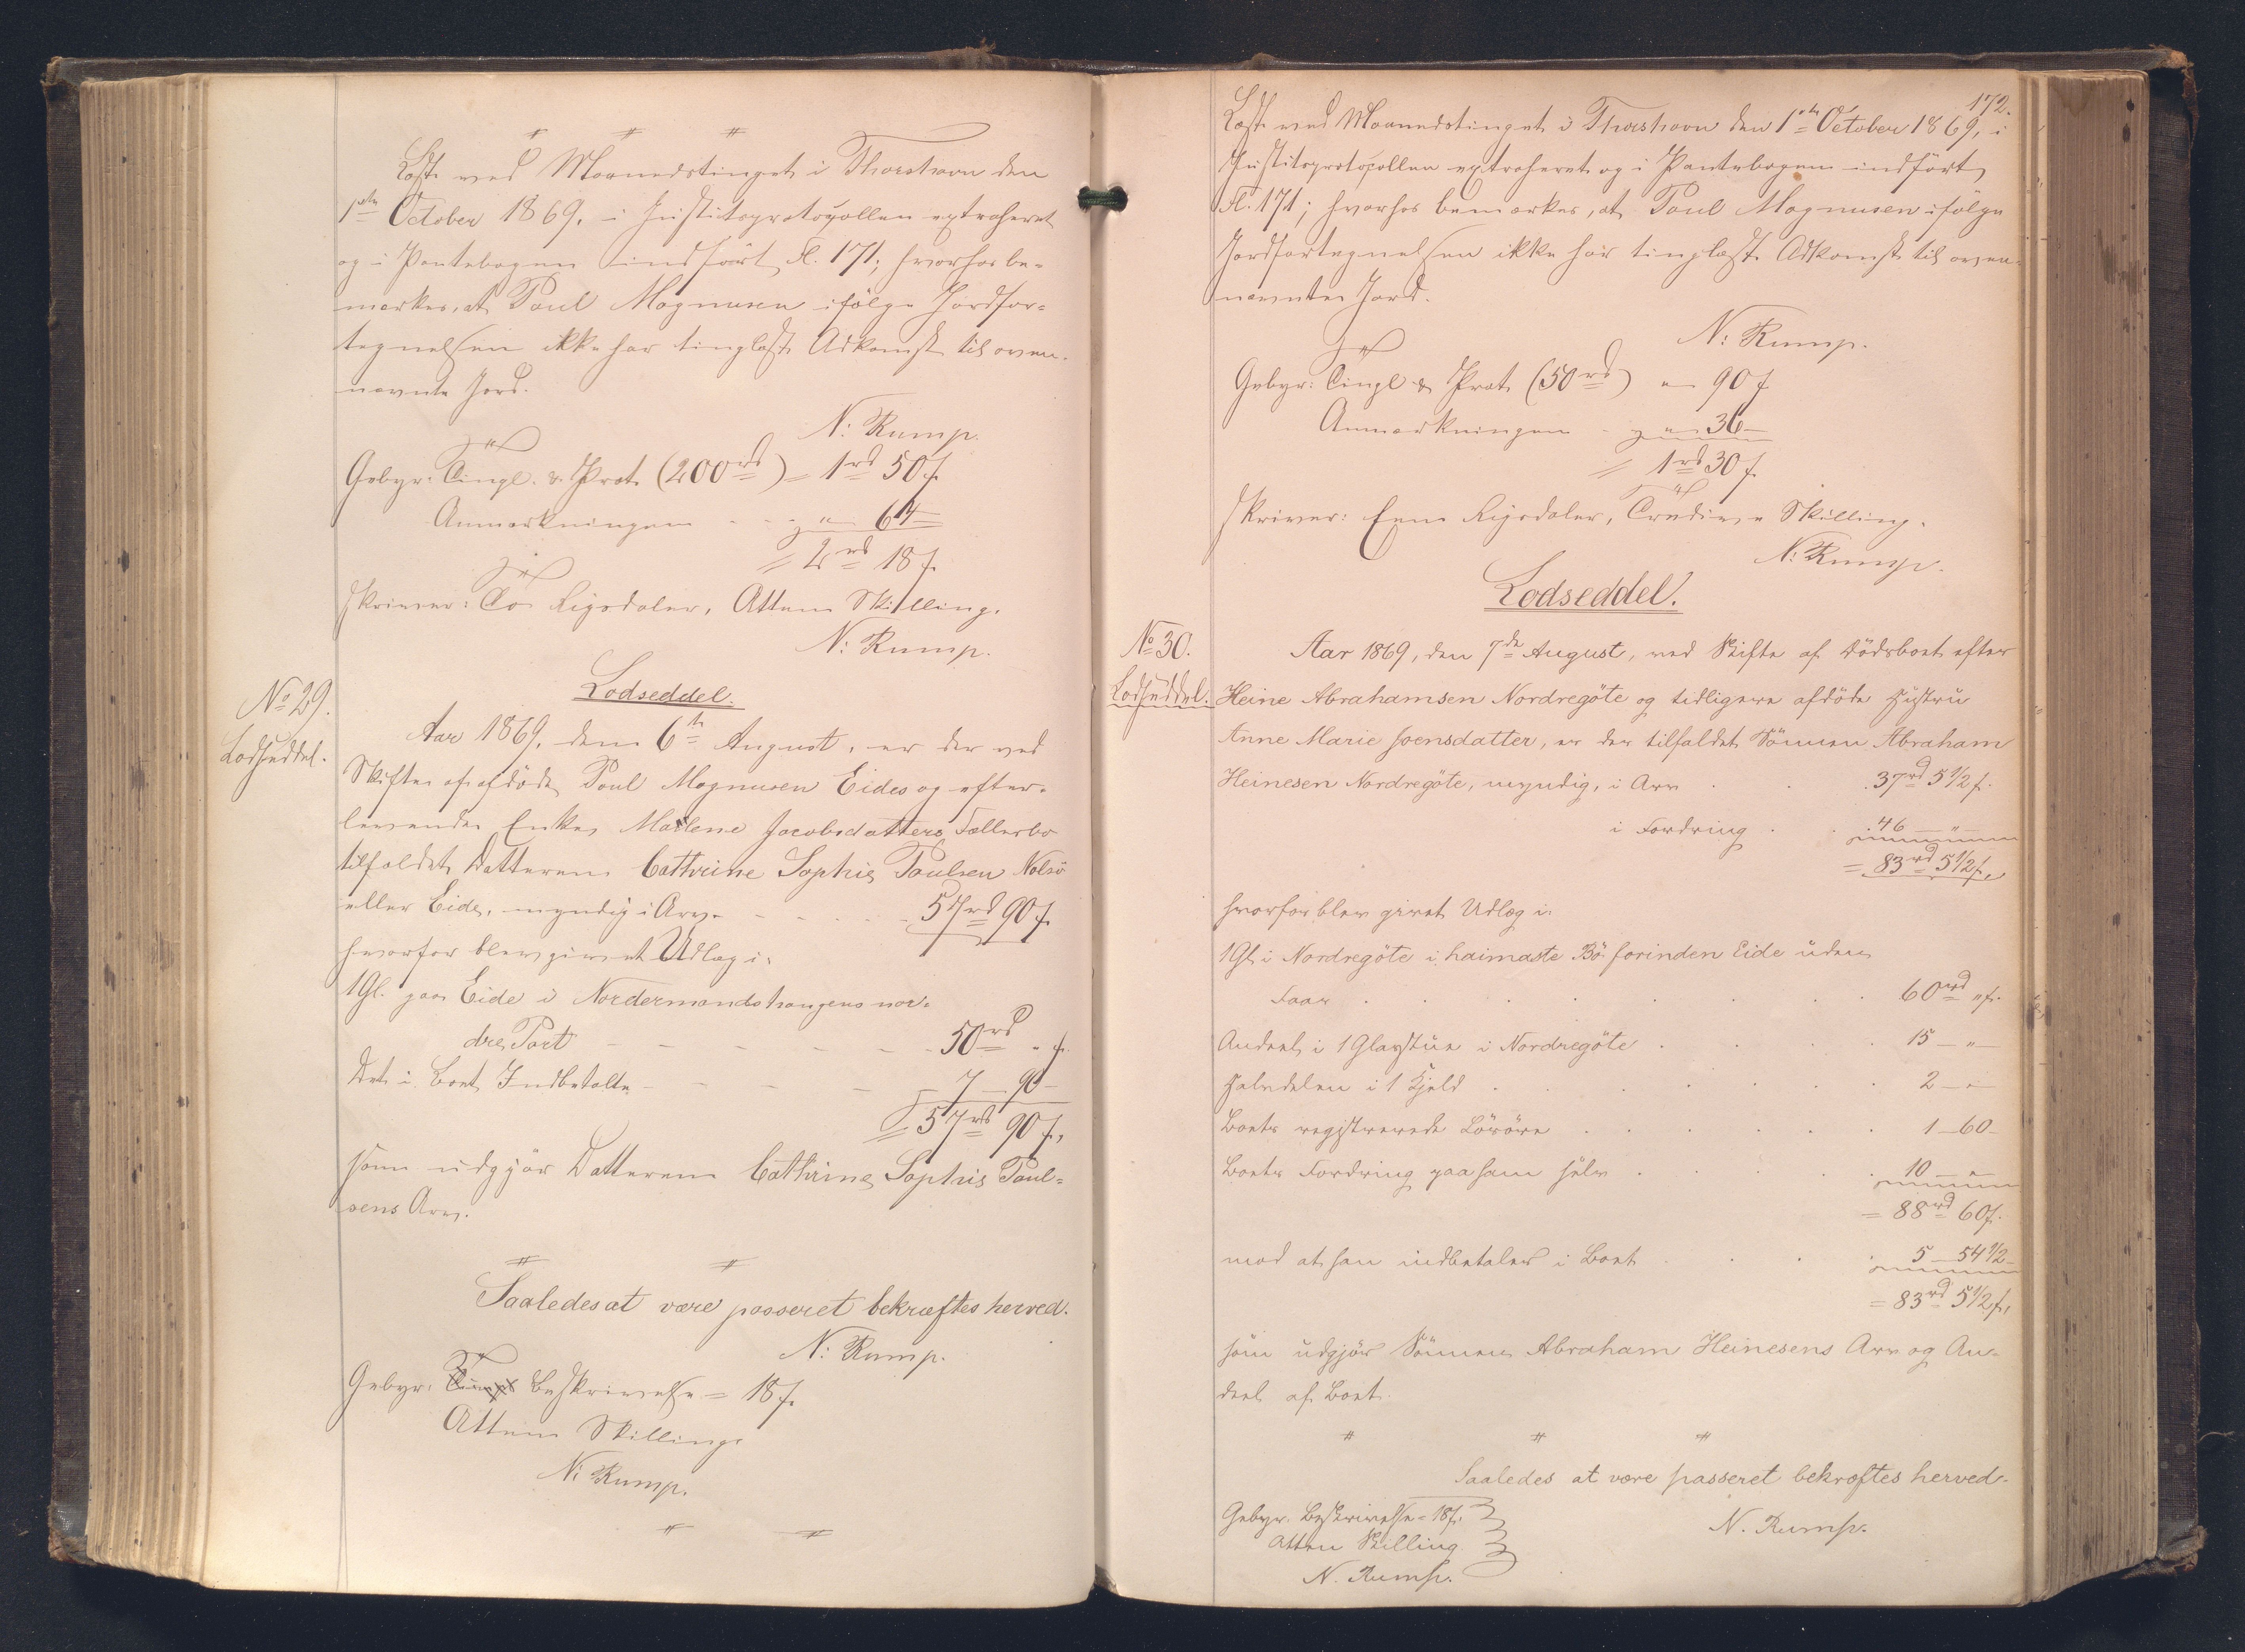 # # #
Læst ved Maanedstinget i Thorshavn den
1ste October 1869, i Justitsprotocollen extraheret
og i Pantebogen indført Fl. 171; hvorhos be-
mærkes, at Poul Magnusen ifølge Jordfor-
tegnelsen ikke har tinglæst Adkomst til oven-
nævnte Jord.
N: Rump.
Gebyr: Tingl. & Prot. (200rd) = 1rd 50 f.
Anmærkningen - - - " 64
= 2rd 18 f.
skriver: To Rigsdaler, Atten Skilling.
N: Rump.
Lodseddel.
No 29.
Lodseddel.
Aar 1869, den 6te August, er der ved
Skifte af afdøde Poul Magnusen Eides og efter-
levende Enke Marlene Jacobsdatters Fællesbo
tilfaldet Datteren Cathrine Sophie Poulsen Nolsö
eller Eide, myndig i Arv - - - - 57rd 90 f.
hvorfor blev givet Udlæg i:
1 Gl. paa Eide i Nordermandshaugens nor-
dre Part - - - - - 50rd " f.
Det i Boet Indbetalte - - - - 7 — 90 —
= 57rd 90 f.,
som udgjør Datteren Cathrine Sophie Poul-
sens Arv.
# #
Saaledes at være passeret bekræftes herved.
N: Rump.
Gebyr: Beskrivelse = 18 f.
Atten Skilling
N: Rump.
# #
172.
Læst ved Maanedstinget i Thorshavn den 1ste October 1869, i
Justitsprotocollen extraheret og i Pantebogen indført
Fl. 171; hvorhos bemærkes, at Poul Magnusen ifølge
Jordfortegnelsen ikke har tinglæst Adkomst til oven-
nævnte Jord.
N: Rump.
Gebyr: Tingl & Prot. (50rd) " 90 f
Anmærkningen - " 36 —
= 1rd 30 f.
skriver: Een Rigsdaler, Tredive Skilling.
N: Rump.
Lodseddel.
No 30.
Lodseddel.
Aar 1869, den 7de August, ved Skifte af Dödsboet efter
Heine Abrahamsen Nordregöte og tidligere afdöde Hustru
Anne Marie Joensdatter, er der tilfaldet Sönnen Abraham
Heinesen Nordregöte, myndig, i Arv . . . 37rd 5 1/2 f.
i Fordring . . 46 — " —
= 83rd 5 1/2 f.,
hvorfor blev givet Udlæg i:
1 Gl i Nordregöte i haimaste Bö forinden Eide uden
Faar . . . . . . . . 60rd " f.
Andeel i 1 Glasstue i Nordregöte . . . . 15 — " —
Halvdelen i 1 Hjeld . . . . . . 2 — " —
Boets registrerede Lösöre . . . . . . 1 — 60 —
Boets Fordring paa ham selv . . . . . 10 — " —
= 88rd 60 f.
mod at han indbetaler i Boet . . . . 5 — 54 1/2 —
= 83rd 5 1/2 f.,
som udgjør Sönnen Abraham Heinesens Arv og An-
deel af Boet.
# # #
Saaledes at være passeret bekræftes herved.
Gebyr. Beskrivelse = 18 f.
N. Rump.
Atten Skilling.
N. Rump.